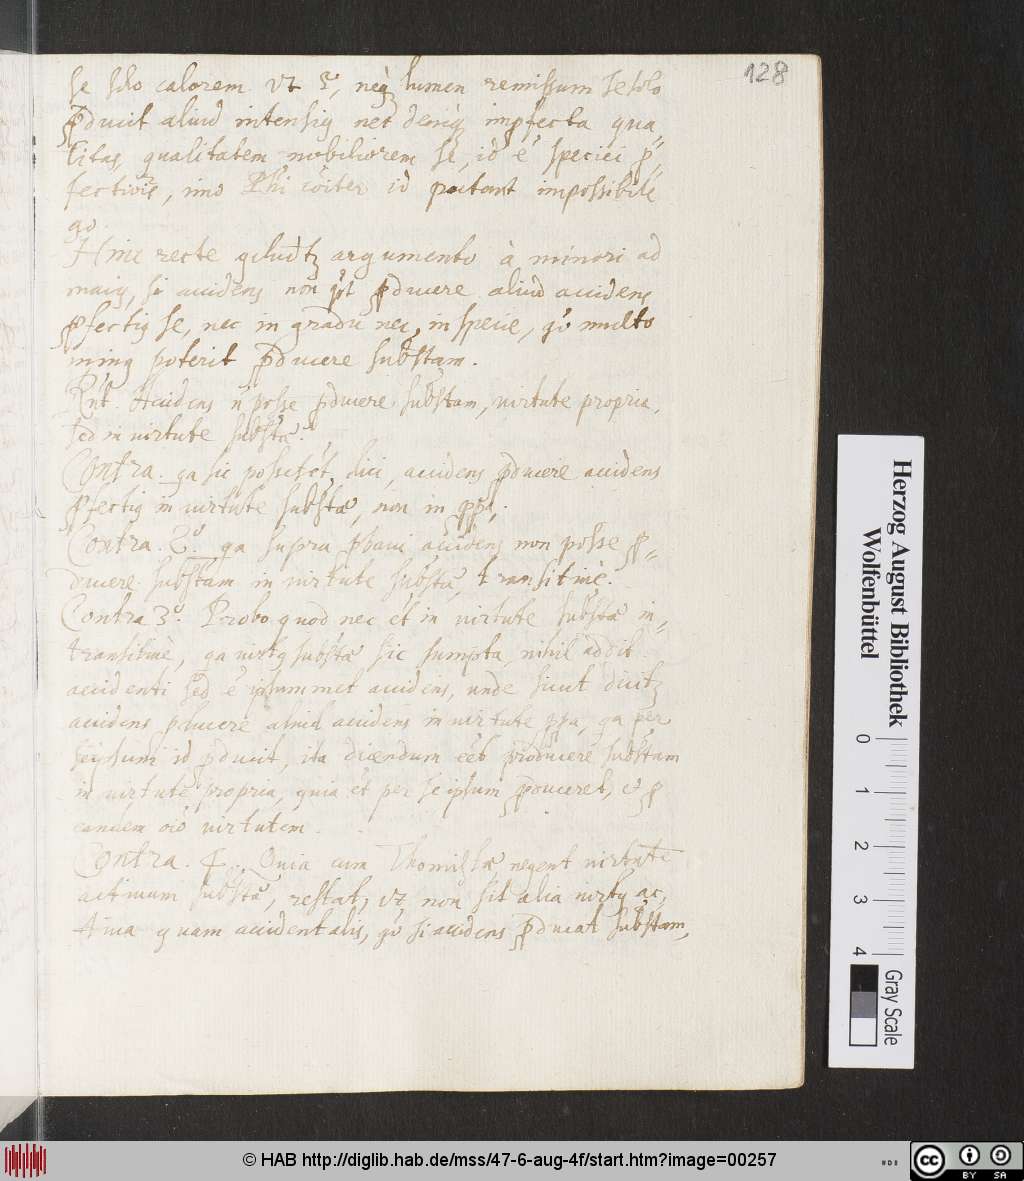 128
se solo calorem vt 3, neq lumen remissum se solo
pducit aliud intensig nec deniq impfecta qua=
litas qualitatem nobiliorem se, id ē speciei p=
fectioris, imo Phi cōiter id putant impossibile
go
Hinc recte gcludtz argumento à minori ad
maig, si accidens non pōt pducere aliud accidens
pfectig se, nec in gradu nec in specie, gō multo
ming poterit pducere substam.
Rnt. Accidens n posse pducere substam, virtute propria,
sed in virtute substæ.
Contra. qa sic posset ēt dici, accidens pducere accidens
pfectig in virtute substæ, non in ppa.
Contra. 2º. qa supra pbaui accidens non posse p=
ducere substam in virtute substæ, transitiuè.
Contra 3º. Probo quod nec ēt in virtute substæ in=
transitiuè, qa virtg substæ sic sumpta nihil addit
accidenti sed ē ipsummet accidens, unde sicut dicitz
accidens pducere aliud accidens in virtute ppa, qa per
seipsum id pducit, ita dicendum eēt producere substam
in virtute propria, quia ēt per se ipsum pduceret, & p
eandem oīō virtutem.
Contra. 4. Quia cum Thomistæ negent virtutē
actiuam substæ, restat, vt non sit alia virtg ac,
tiua quam accidentalis, gō si accidens pducat substam,
Herzog August Bibliothek
Wolfenbüttel
0 1 2 3 4
Gray Scale
© HAB http://diglib.hab.de/mss/47-6-aug-4f/start.htm?image=00257
cc BY SA